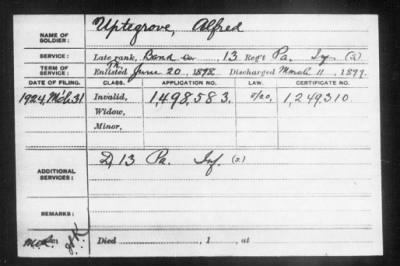 NAME OF SOLDIER: Uptegrove, Alfred
SERVICE: Late rank, Band Co 13 Reg't Pa. Inf (S)
TERM OF SERVICE: Enlisted June 20, 1898 Discharged March 11, 1899.
DATE OF FILING. CLASS. APPLICATION NO. LAW. CERTIFICATE NO.
1924, Mch 31 Invalid, 1,498,583. 1,249,310
Widow,
Minor,
ADDITIONAL SERVICES: D, 13 Pa. Inf. (S)
REMARKS:
Died , 1 , at